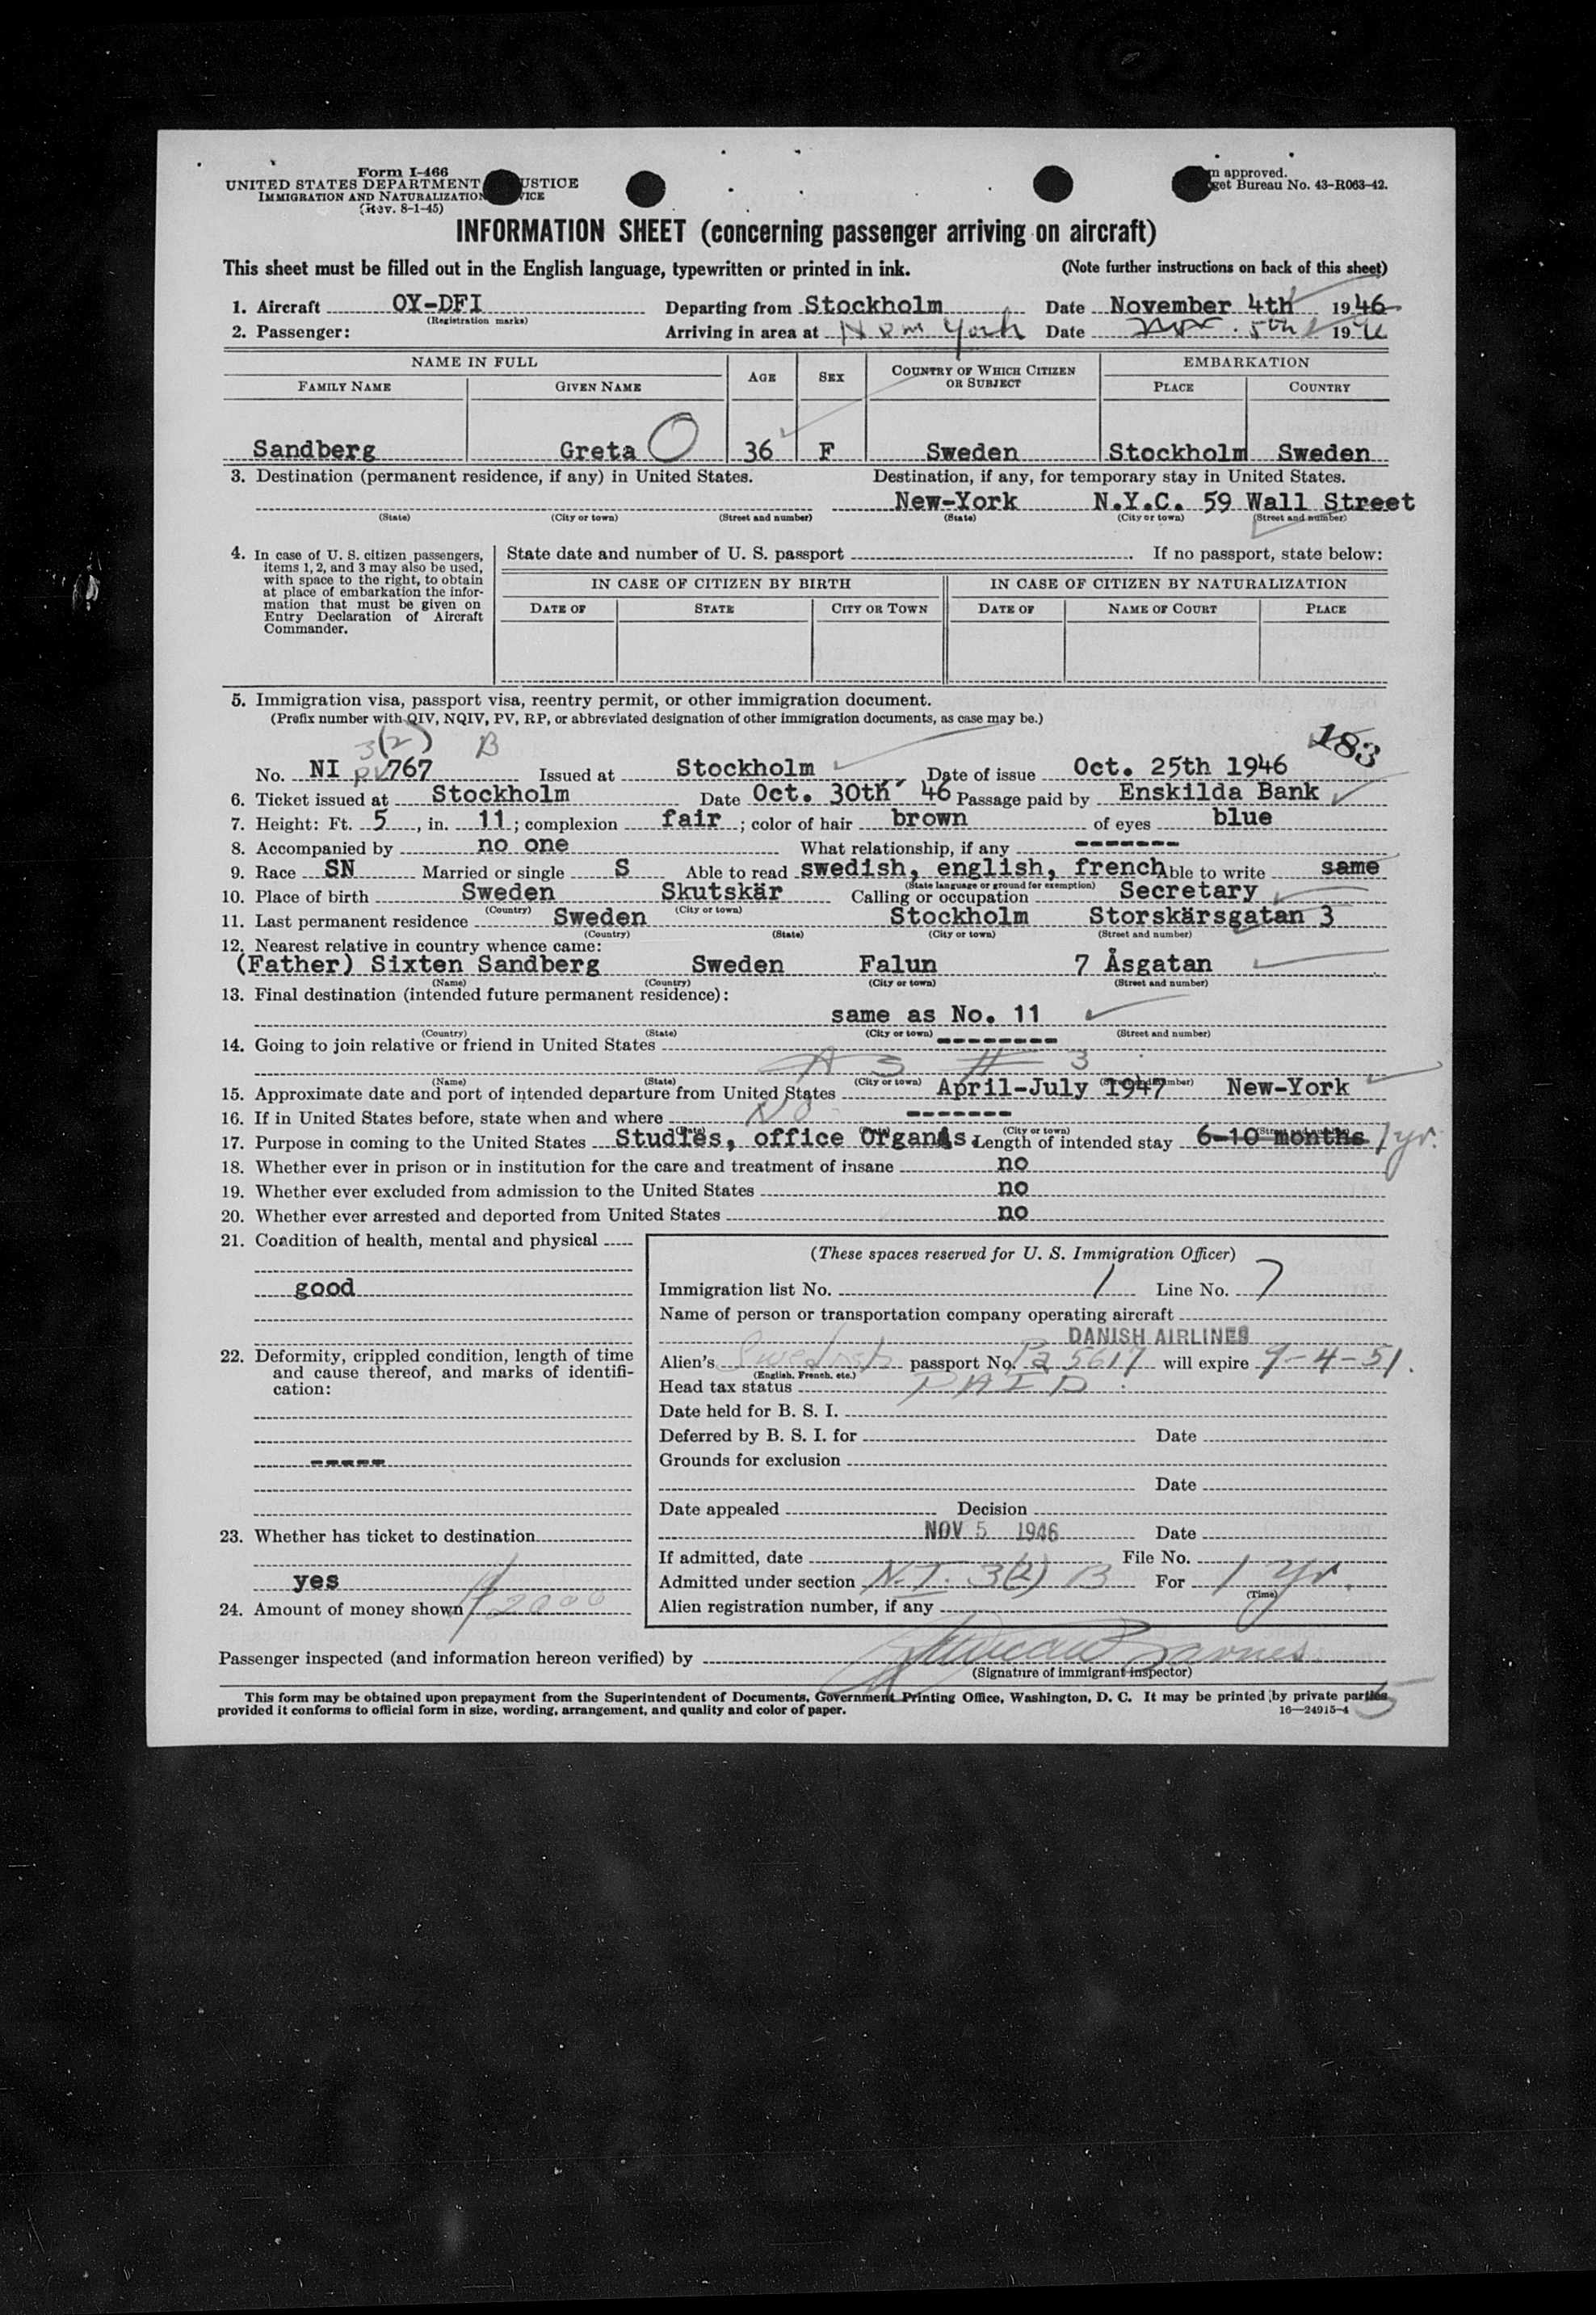 Form I-466
UNITED STATES DEPARTMENT USTICE
IMMIGRATION AND NATURALIZATION VICE
(Rev. 8-1-45)
m approved.
get Bureau No. 43-R063-42.
INFORMATION SHEET (concerning passenger arriving on aircraft)
This sheet must be filled out in the English language, typewritten or printed in ink. (Note further instructions on back of this sheet)
1. Aircraft OY-DFI Departing from Stockholm Date November 4th 1946
(Registration marks)
2. Passenger: Arriving in area at New York Date Nov. 5th 1946
NAME IN FULL AGE SEX COUNTRY OF WHICH CITIZEN OR SUBJECT EMBARKATION
FAMILY NAME GIVEN NAME PLACE COUNTRY
Sandberg Greta 36 F Sweden Stockholm Sweden
3. Destination (permanent residence, if any) in United States. Destination, if any, for temporary stay in United States.
New-York N.Y.C. 59 Wall Street
(State) (City or town) (Street and number) (State) (City or town) (Street and number)
4. In case of U. S. citizen passengers, items 1, 2, and 3 may also be used, with space to the right, to obtain at place of embarkation the information that must be given on Entry Declaration of Aircraft Commander.
State date and number of U. S. passport . If no passport, state below:
IN CASE OF CITIZEN BY BIRTH IN CASE OF CITIZEN BY NATURALIZATION
DATE OF STATE CITY OR TOWN DATE OF NAME OF COURT PLACE
5. Immigration visa, passport visa, reentry permit, or other immigration document.
(Prefix number with QIV, NQIV, PV, RP, or abbreviated designation of other immigration documents, as case may be.)
3(2) B 183
No. NI PV 767 Issued at Stockholm Date of issue Oct. 25th 1946
6. Ticket issued at Stockholm Date Oct. 30th 46 Passage paid by Enskilda Bank
7. Height: Ft. 5, in. 11; complexion fair; color of hair brown of eyes blue
8. Accompanied by no one What relationship, if any -------
9. Race SN Married or single S Able to read swedish, english, french Able to write same
(State language or ground for exemption)
10. Place of birth Sweden Skutskär Calling or occupation Secretary
(Country) (City or town)
11. Last permanent residence Sweden Stockholm Storskärsgatan 3
(Country) (State) (City or town) (Street and number)
12. Nearest relative in country whence came:
(Father) Sixten Sandberg Sweden Falun 7 Åsgatan
(Name) (Country) (City or town) (Street and number)
13. Final destination (intended future permanent residence):
same as No. 11
(Country) (State) (City or town) (Street and number)
14. Going to join relative or friend in United States --------
A S # 3
(Name) (State) (City or town) (Street and number)
15. Approximate date and port of intended departure from United States April-July 1947 New-York
16. If in United States before, state when and where No -------
(Date) (State) (City or town) (Street and number)
17. Purpose in coming to the United States Studies, office Organis. Length of intended stay 6-10 months 1 yr.
18. Whether ever in prison or in institution for the care and treatment of insane no
19. Whether ever excluded from admission to the United States no
20. Whether ever arrested and deported from United States no
21. Condition of health, mental and physical
good
22. Deformity, crippled condition, length of time and cause thereof, and marks of identification:
-----
23. Whether has ticket to destination
yes
24. Amount of money shown $2000
(These spaces reserved for U. S. Immigration Officer)
Immigration list No. 1 Line No. 7
Name of person or transportation company operating aircraft
DANISH AIRLINES
Alien's Swedish passport No. Pa 5617 will expire 9-4-51.
(English, French, etc.)
Head tax status PAID
Date held for B. S. I.
Deferred by B. S. I. for Date
Grounds for exclusion
Date
Date appealed Decision
NOV 5 1946 Date
If admitted, date File No.
Admitted under section N.I. 3(2) B For 1 Yr.
(Time)
Alien registration number, if any
Passenger inspected (and information hereon verified) by Barnes
(Signature of immigrant inspector)
This form may be obtained upon prepayment from the Superintendent of Documents, Government Printing Office, Washington, D. C. It may be printed by private parties
provided it conforms to official form in size, wording, arrangement, and quality and color of paper. 16—24915-4 5